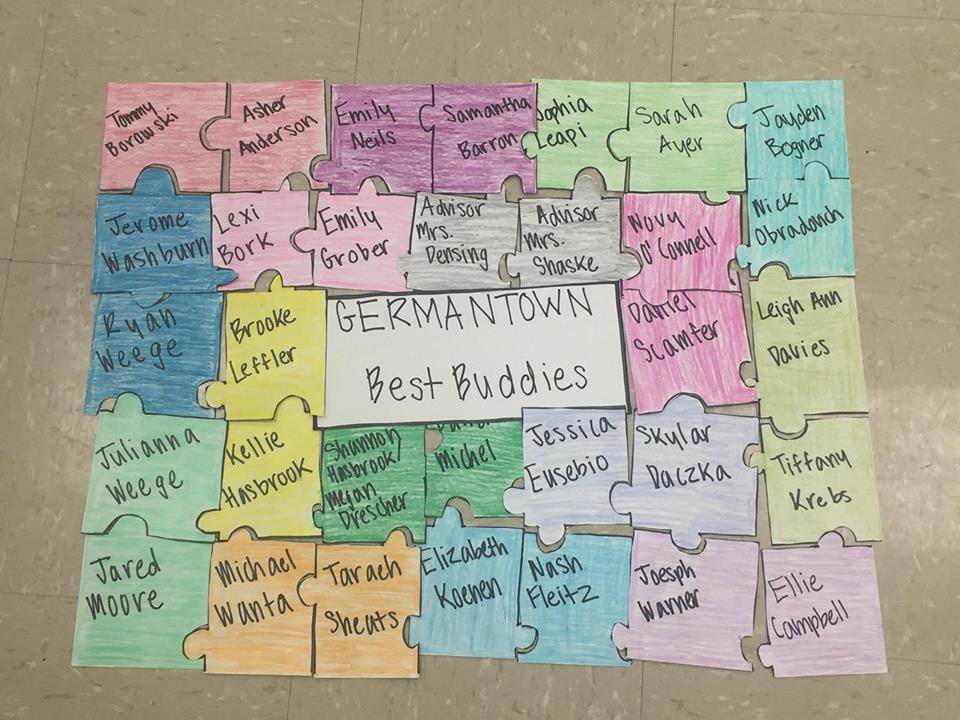 Tommy
Borowski
Asher
Anderson
Emily
Neils
Samantha
Barron
Sophia
Leapi
Sarah
Ayer
Jayden
Bogner
Jerome
Washburn
Lexi
Bork
Emily
Grober
Advisor
Mrs.
Densing
Advisor
Mrs.
Shaske
Novy
O'Connell
Nick
Obradovich
Ryan
Weege
Brooke
Leffler
GERMANTOWN
Best Buddies
Daniel
Scamfer
Leigh Ann
Davies
Julianna
Weege
Kellie
Hasbrook
Shannon
Hasbrook/
Megan
Drescher
Michel
Jessica
Eusebio
Skylar
Daczka
Tiffany
Krebs
Jared
Moore
Michael
Wanta
Tarach
Sheuts
Elizabeth
Koenen
Nash
Fleitz
Joesph
Warner
Ellie
Campbell